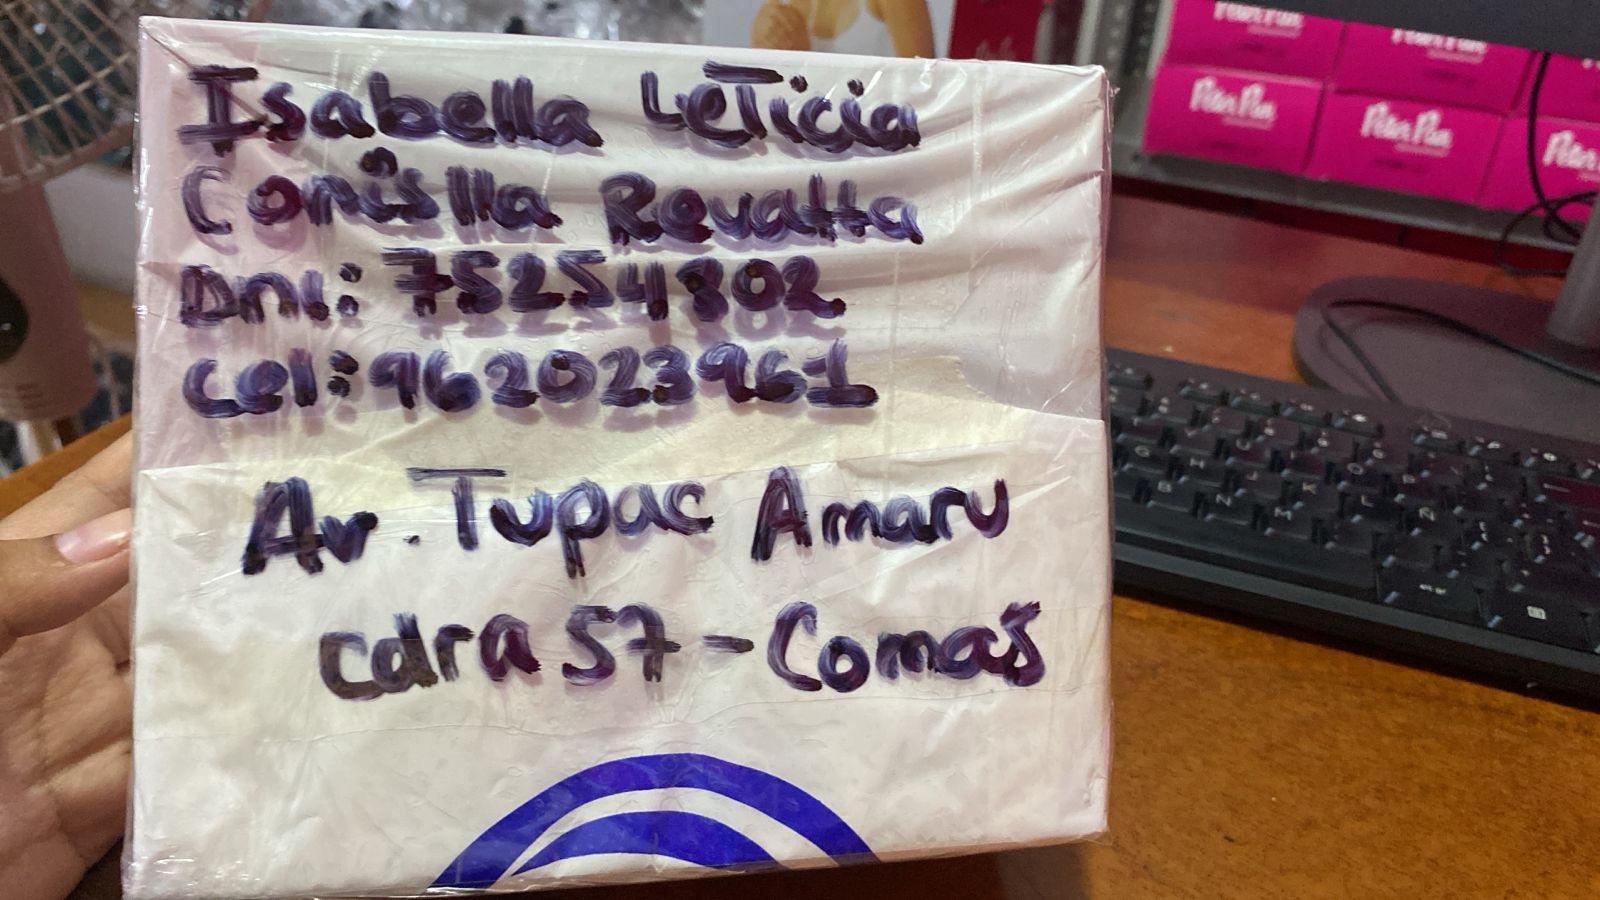 Isabella Leticia
Conislla Revatta
Dni: 75254802
Cel: 962023961
Av. Tupac Amaru
cdra 57 - Comas
Peter Pan
Peter Pan
Peter Pan
Peter Pan
Peter